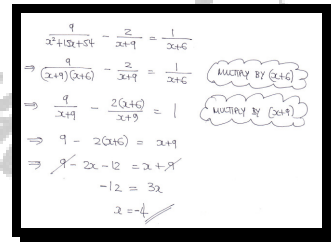 9/(x²+15x+54) - 2/(x+9) = 1/(x+6)
⇒ 9/((x+9)(x+6)) - 2/(x+9) = 1/(x+6) MULTIPLY BY (x+6)
⇒ 9/(x+9) - 2(x+6)/(x+9) = 1 MULTIPLY BY (x+9)
⇒ 9 - 2(x+6) = x+9
⇒ 9 - 2x - 12 = x + 9
-12 = 3x
x = -4